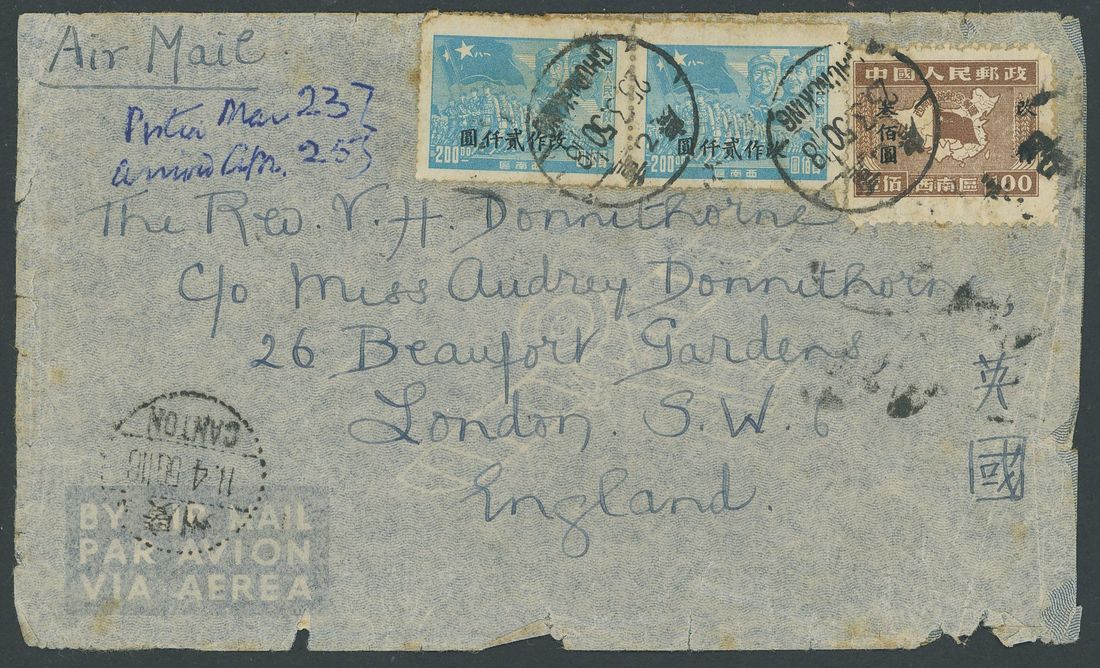 Air Mail.
23)
arrived 25)
200.00
改作貳仟圓
西南區
200.00
改作貳仟圓
西南區
中國人民郵政
改
叁佰圓
佰
西南區
00
CHUNGKING
25.3.50.18
CHUNGKING
50.18
The Rev. V. H. Donnithorne
c/o Miss Audrey Donnithorne,
26 Beaufort Gardens
London. S. W. 6
England.
英
國
CANTON
11.4
BY AIR MAIL
PAR AVION
VIA AEREA